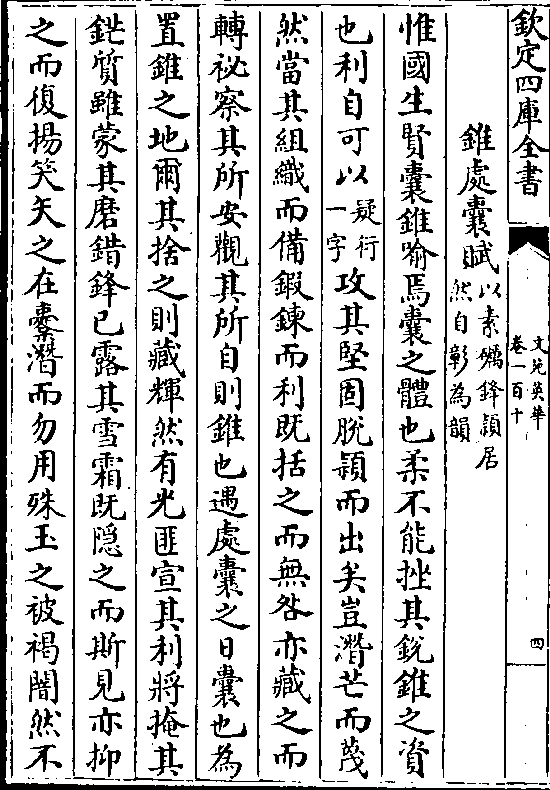 欽定四庫全書
文苑英華
卷一百十
四
錐處囊賦以素礪鋒頴居
然自彰為韻
惟國生賢囊錐喻焉囊之體也柔不能挫其銳錐之資
也利自可以疑衍一字攻其堅固脫頴而出矣豈潛芒而蔑
然當其組織而備鍜鍊而利既括之而無咎亦藏之而
轉祕察其所安觀其所自則錐也遇處囊之日囊也為
置錐之地爾其捨之則藏輝然有光匪宣其利將掩其
鋩質雖蒙其磨錯鋒已露其雪霜既隐之而斯見亦抑
之而復揚笑矢之在櫜潛而勿用殊玉之被褐闇然不